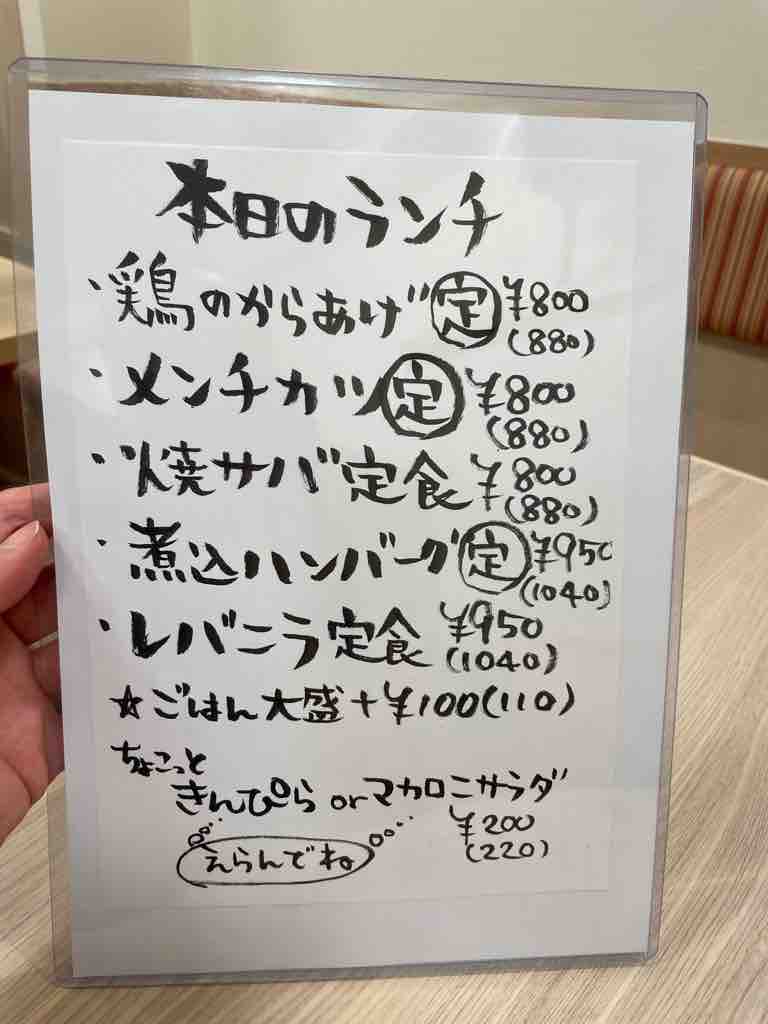 本日のランチ
・鶏のからあげ定 ¥800
(880)
・メンチカツ定 ¥800
(880)
・焼サバ定食 ¥800
(880)
・煮込ハンバーグ定 ¥950
(1040)
・レバニラ定食 ¥950
(1040)
☆ごはん大盛+¥100(110)
ちょこっと
きんぴら orマカロニサラダ
¥200
(220)
えらんでね